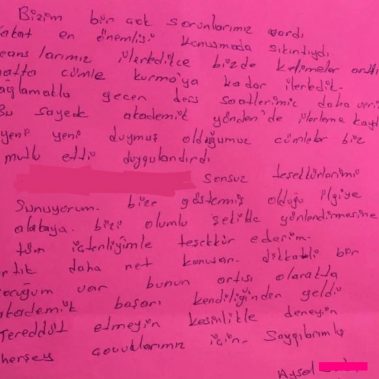 Bizim bir çok sorunlarımız vardı
fakat en önemlisi konuşmada sıkıntıydı
eans larımız ilerledikçe bizde kelimeler arttı
hatta cümle kurma'ya kadar ilerledik.
ağlamakla geçen ders saatlerimiz daha veri
Bu sayede akademik yönden'de ilerleme kayd
yeni yeni duymuş olduğumuz cümleler biz
mutlu etti duygulandırdı
sonsuz teşekkürlerimi
Sunuyorum. bize göstermiş olduğu ilgiye
alakaya. bizi olumlu şekilde yönlendirmesine
tüm içtenliğimle teşekkür ederim.
artık daha net konuşan. dikkatli bir
çocuğum var bunun artısı olarakta
akademik başarı kendiliğinden geldi
Tereddüt etmeyin kesinlikle deneyin
herşey çocuklarımız için. Saygılarımla
Aysel